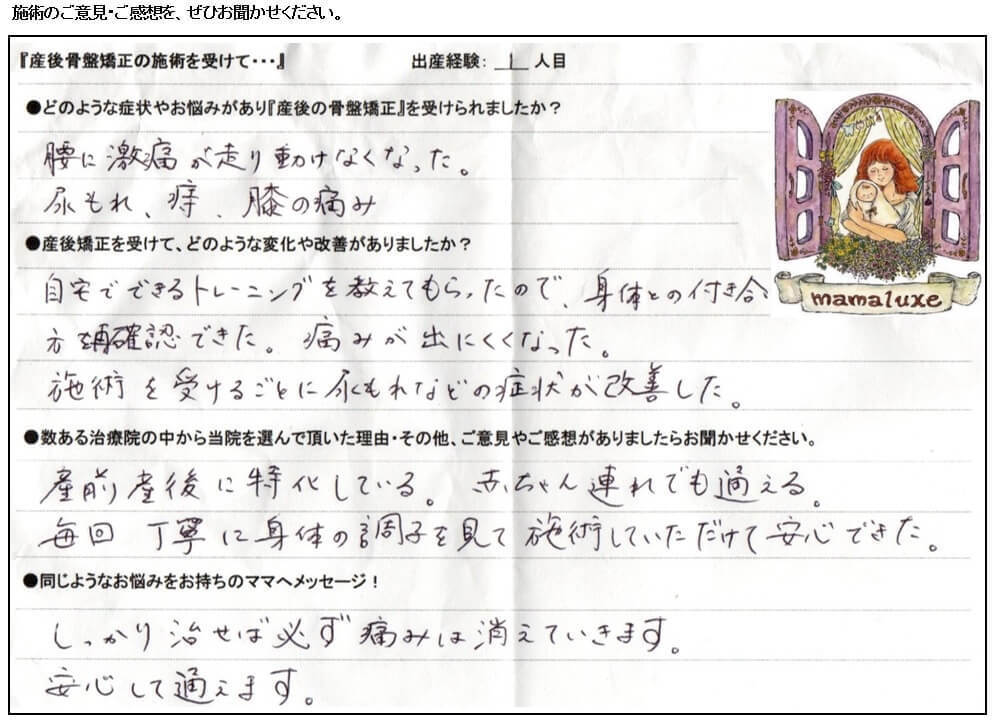 施術のご意見・ご感想を、ぜひお聞かせください。
『産後骨盤矯正の施術を受けて・・・』 出産経験： 1 人目
●どのような症状やお悩みがあり『産後の骨盤矯正』を受けられましたか？
腰に激痛が走り動けなくなった。
尿もれ、痔、膝の痛み
●産後矯正を受けて、どのような変化や改善がありましたか？
自宅でできるトレーニングを教えてもらったので、身体との付き合
方を再確認できた。痛みが出にくくなった。
施術を受けるごとに尿もれなどの症状が改善した。
mamaluxe
●数ある治療院の中から当院を選んで頂いた理由・その他、ご意見やご感想がありましたらお聞かせください。
産前産後に特化している。赤ちゃん連れでも通える。
毎回丁寧に身体の調子を見て施術していただけて安心できた。
●同じようなお悩みをお持ちのママへメッセージ！
しっかり治せば必ず痛みは消えていきます。
安心して通えます。